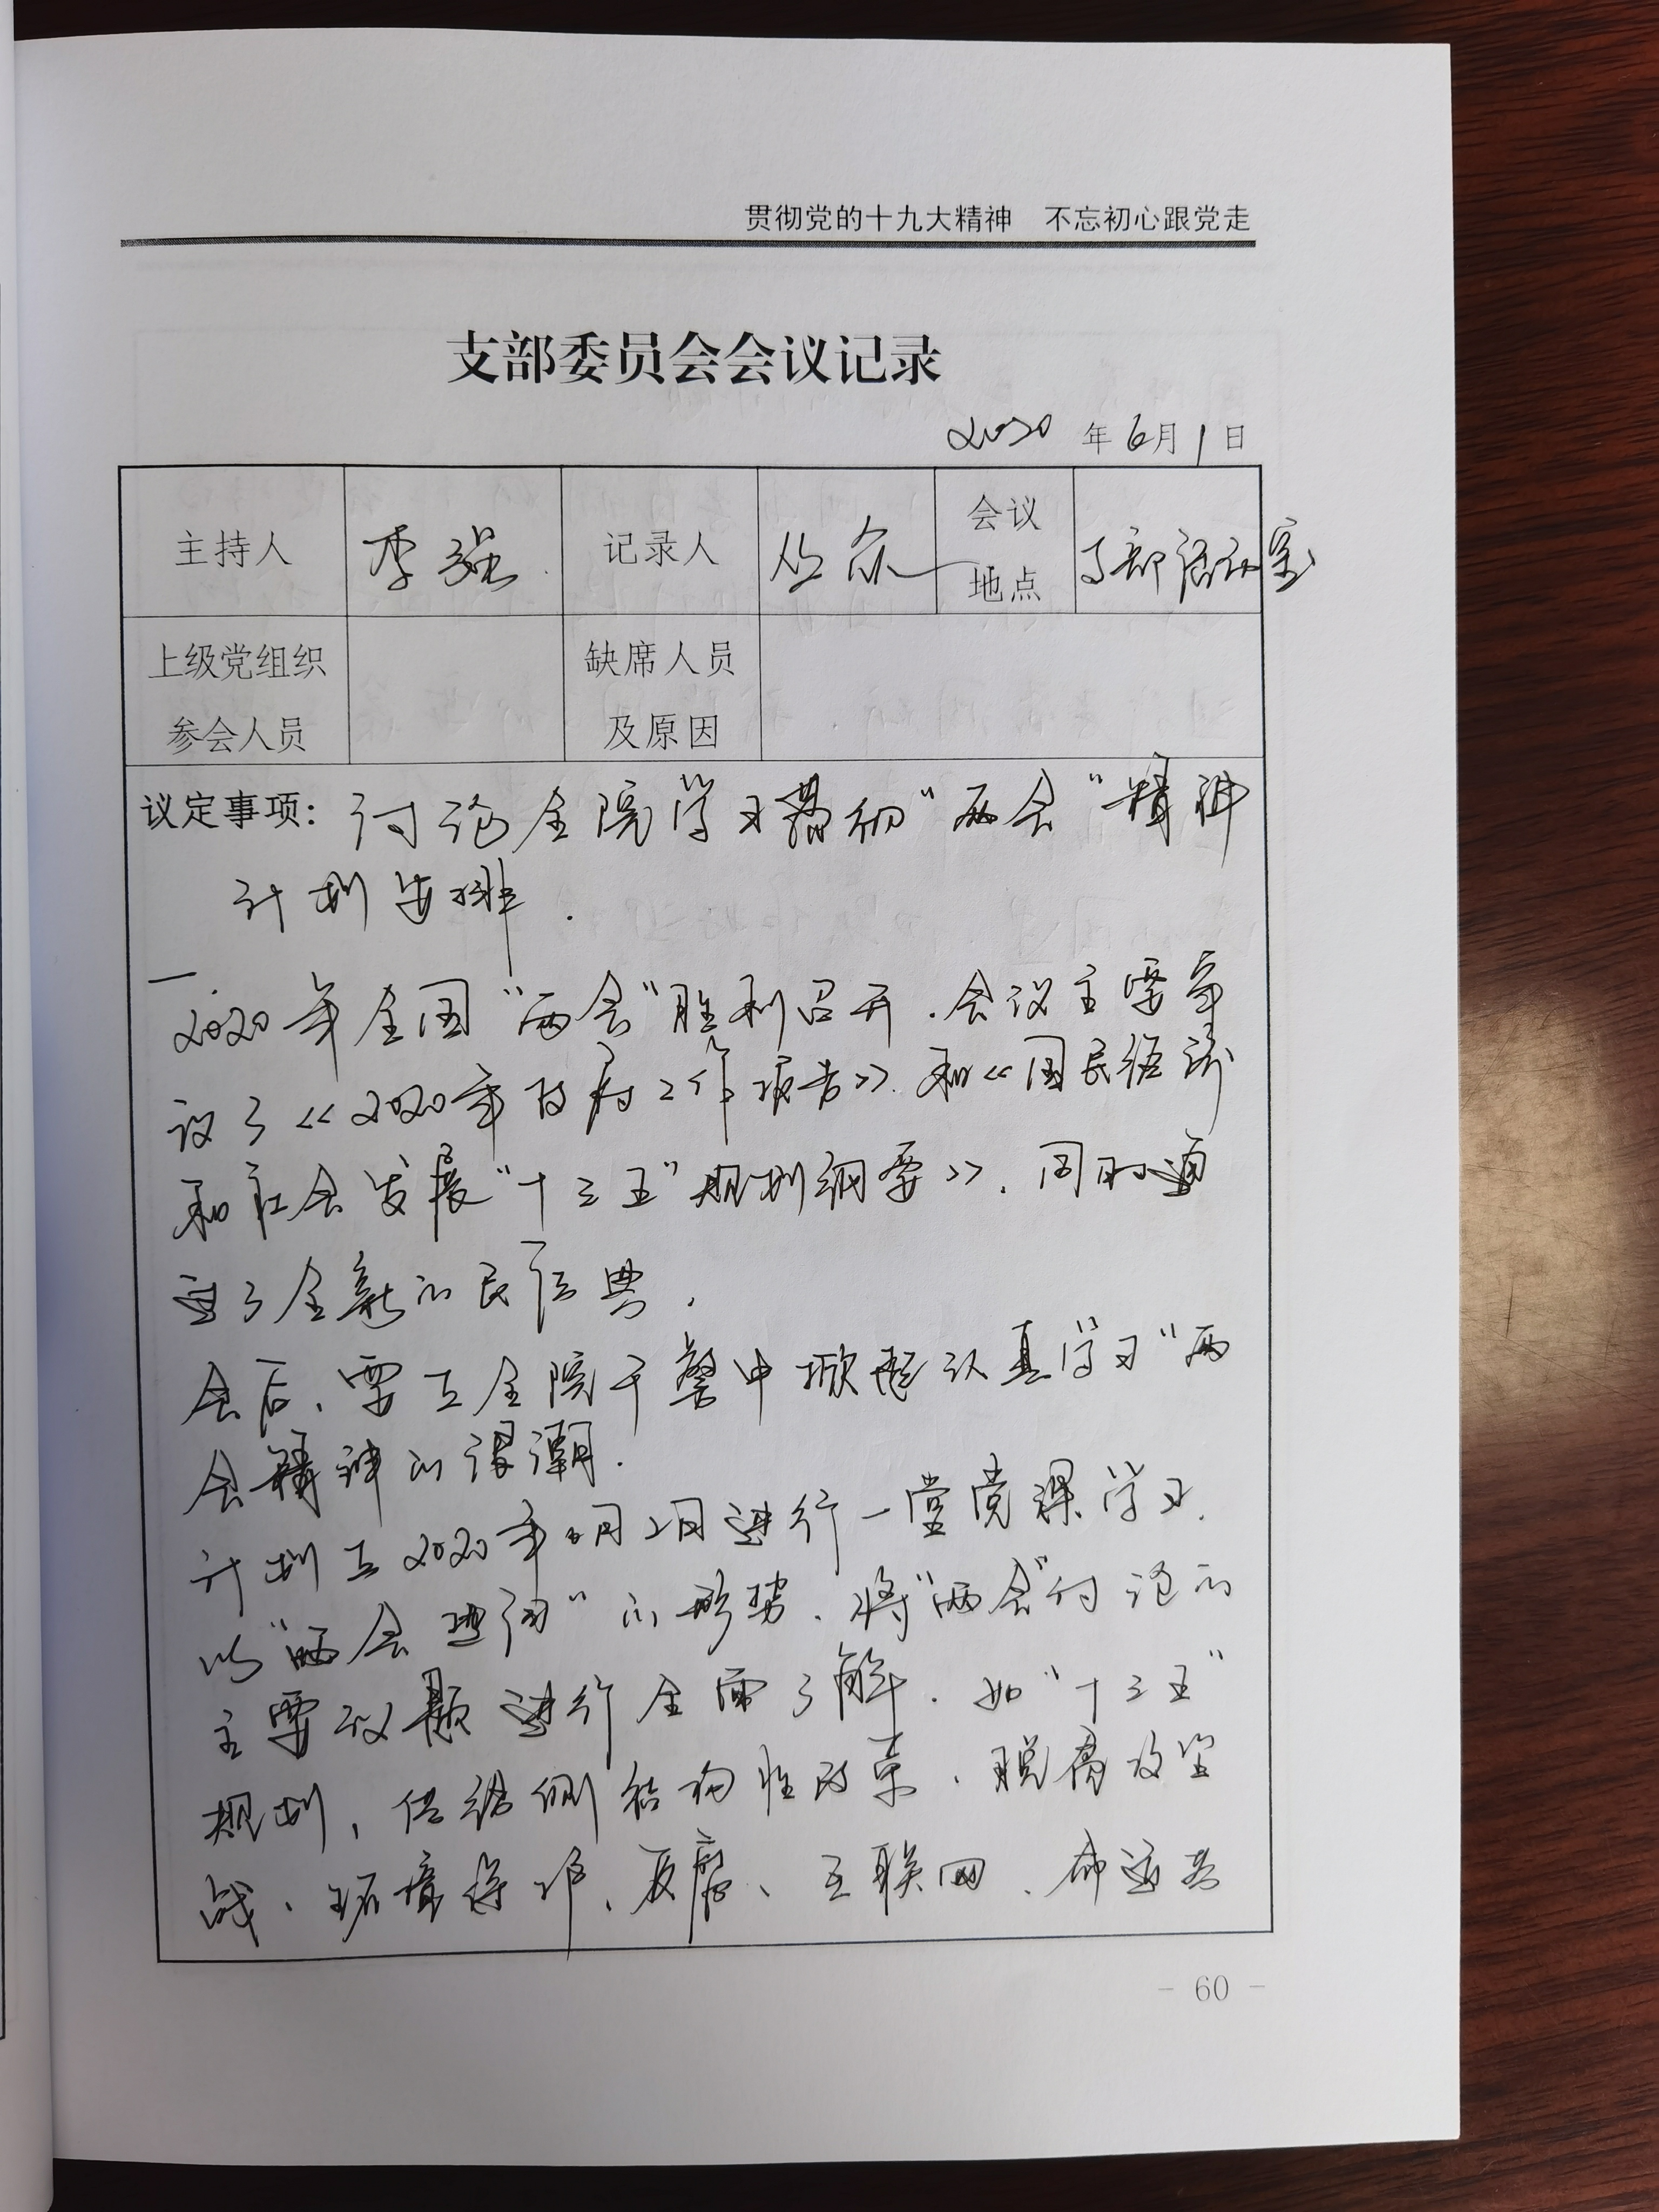 贯彻党的十九大精神 不忘初心跟党走
支部委员会会议记录
2020年6月1日
主持人 李强 记录人 丛众 会议地点 支部活动室
上级党组织参会人员 缺席人员及原因
议定事项：讨论全院学习贯彻“两会”精神
计划安排.
一.
2020年全国“两会”胜利召开.会议主要审
议了《2020年政府工作报告》.和《国民经济
和社会发展“十三五”规划纲要》.同时通
过了全新的民法典.
会后、要在全院干警中掀起认真学习“两
会精神的浪潮.
计划在2020年6月2日进行一堂党课学习.
以“两会热词”的形势、将“两会”讨论的
主要议题进行全面了解.如“十三五”
规划,供给侧结构性改革、脱贫攻坚
战、环境保护、反腐、互联网、命运共
- 60 -